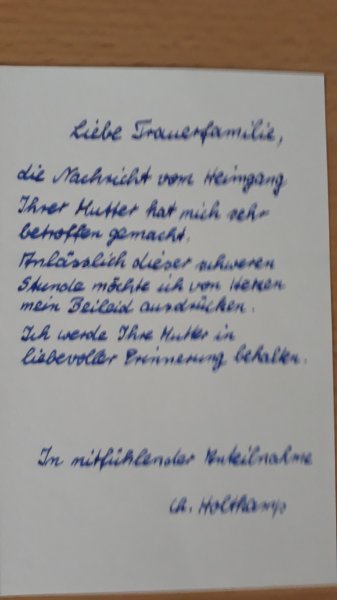 Liebe Trauerfamilie,
die Nachricht vom Heimgang
Ihrer Mutter hat mich sehr
betroffen gemacht.
Anlässlich dieser schweren
Stunde möchte ich von Herzen
mein Beileid ausdrücken.
Ich werde Ihre Mutter in
liebevoller Erinnerung behalten.
In mitfühlender Anteilnahme
Ch. Holtkamp